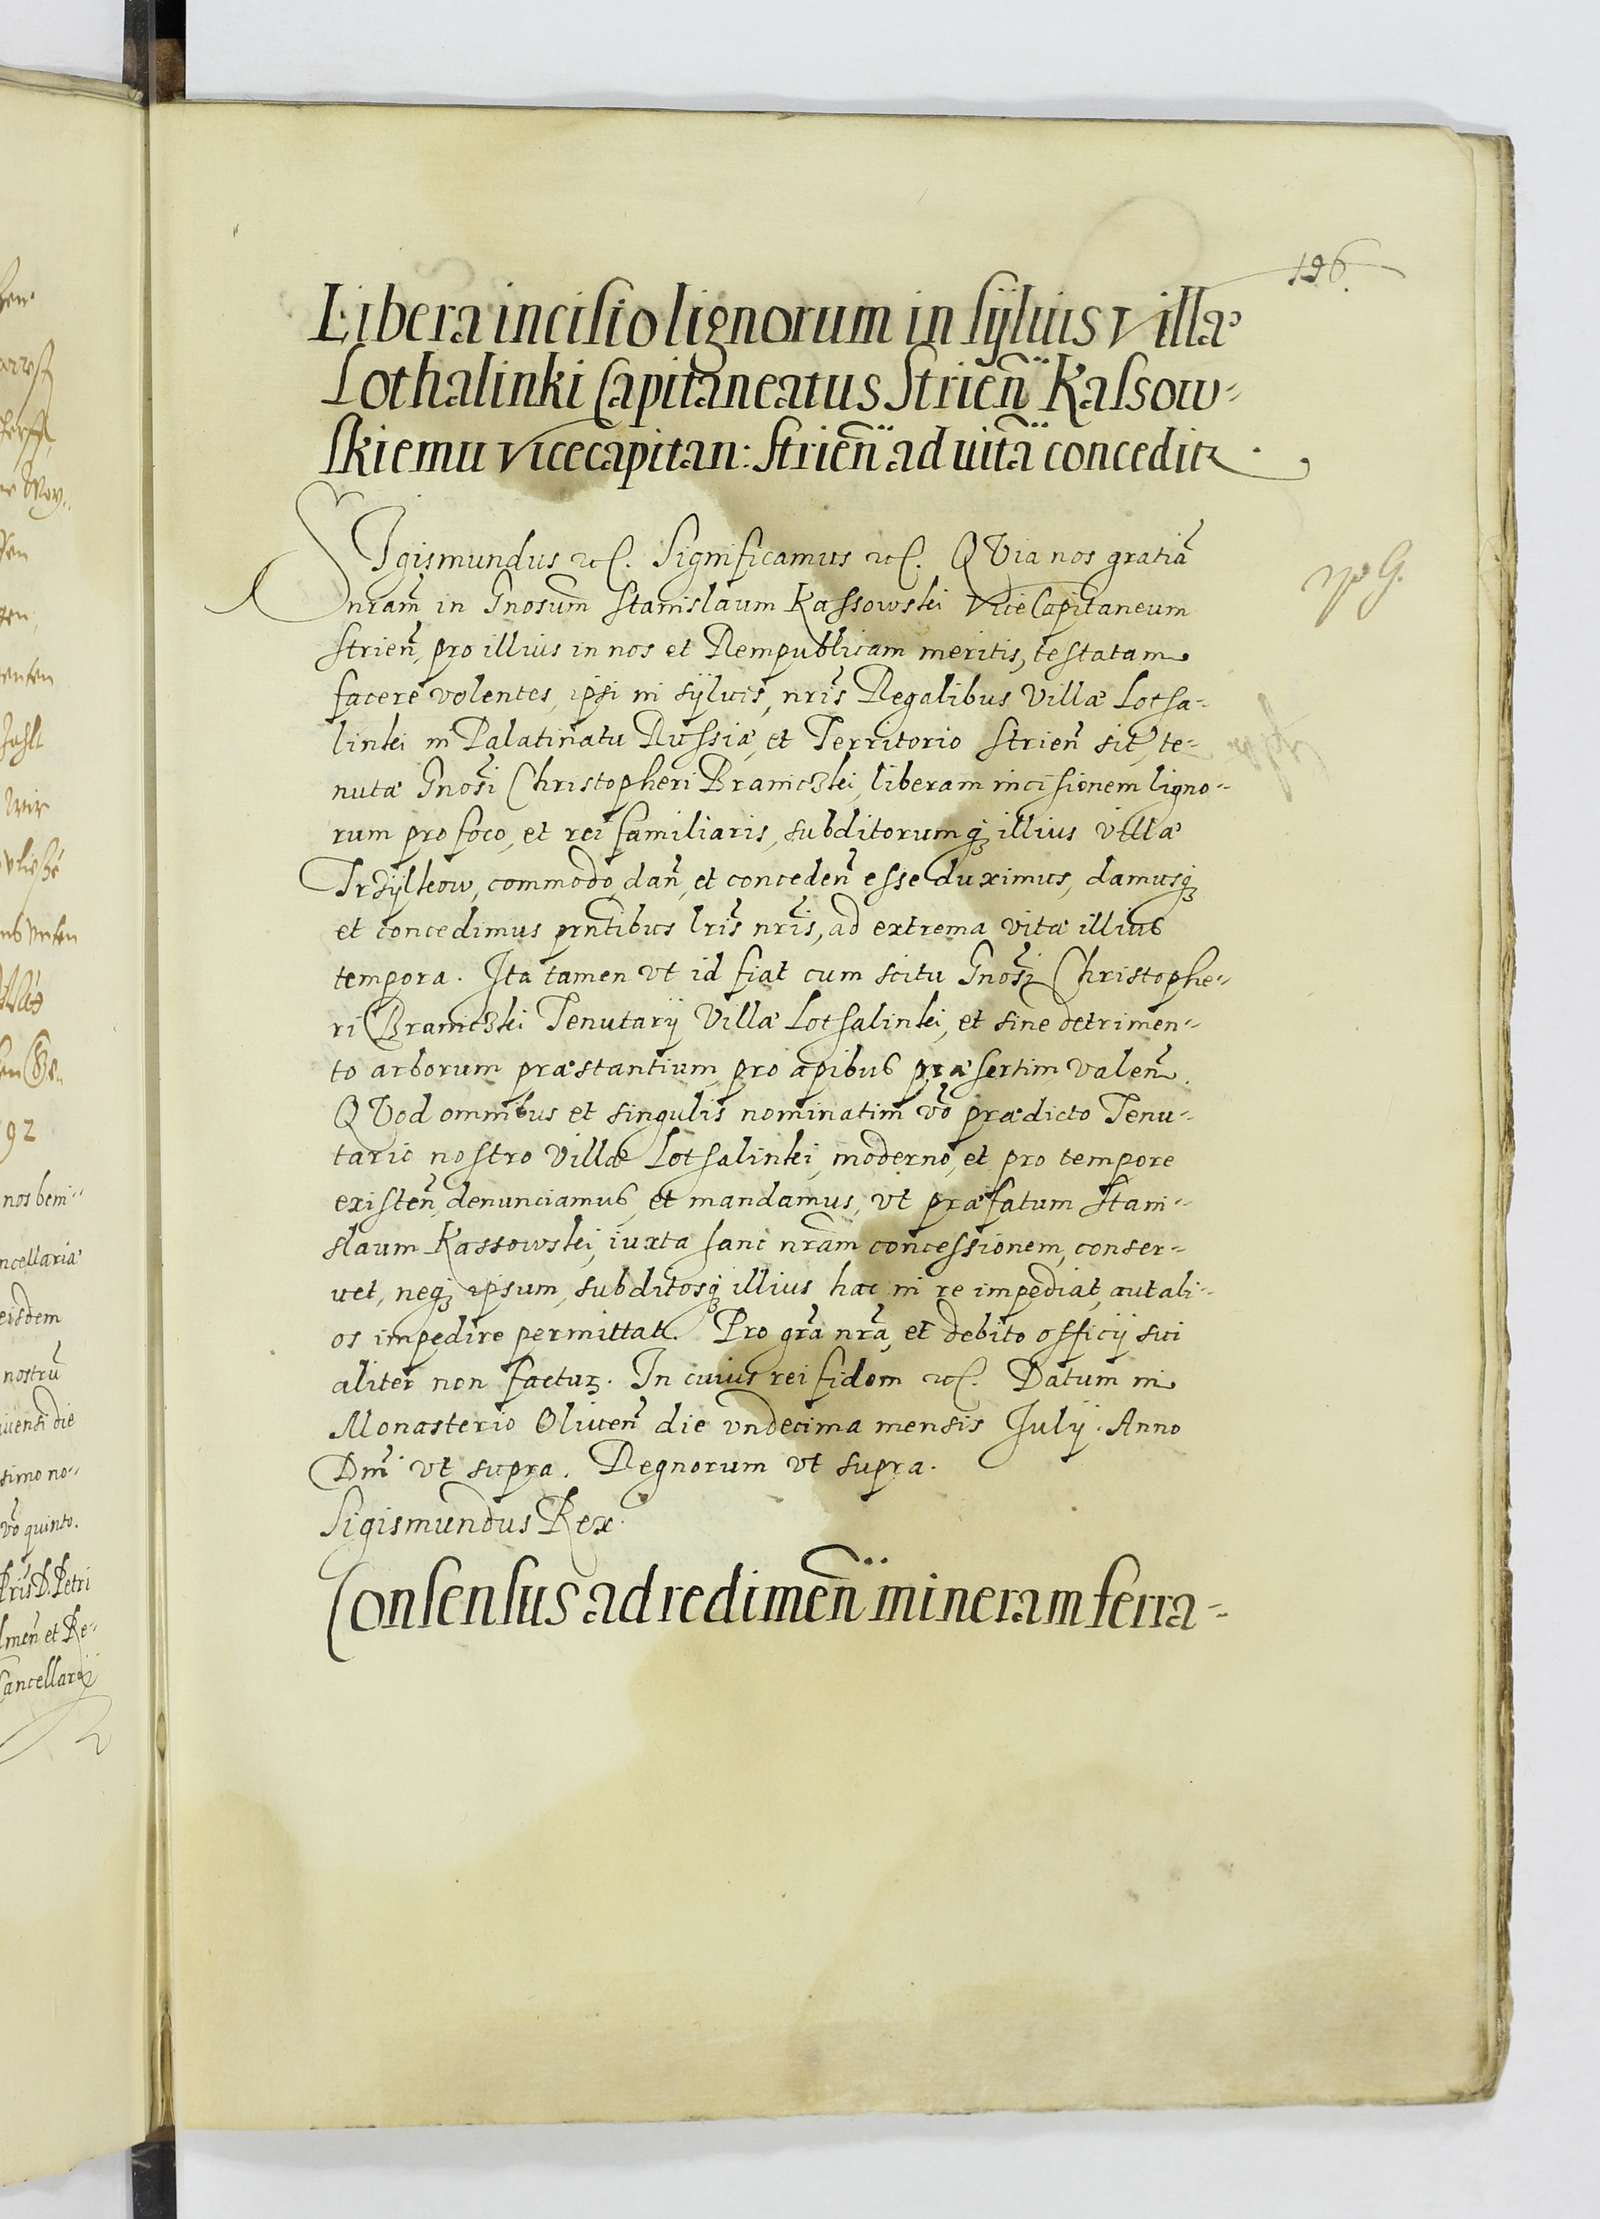 196.
Libera incisio lignorum in sÿluis Villæ
Lothalinki Capitaneatus Strieñ Kassow-
skiemu vicecapitan: Strieñ ad uitã concedit
SIgismundus etc. Significamus etc. QVia nos gratiã
nram̃ in Gnosum̃ Stanislaum Kassowski ViceCapitaneum
Strieñ, pro illius in nos et Rempublicam meritis, testatam
facere volentes, ipsi in sÿluis, nris̃ Regalibus Villæ Lotha-
linki in Palatinatu Russiæ, et Territorio Strieñ sit̃, te-
nutæ Gnosi̇̃ Christopheri Braniczki, liberam incisionem ligno-
rum pro foco, et rei familiaris, subditorumq3 illius villæ
Trzÿlkow, commodo, dañ, et concedeñ esse duximus, damusq3
et concedimus prñtibus lris̃ nris̃, ad extrema vitæ illius
tempora. Ita tamen vt id fiat cum scitu Gnosĩ Christophe-
ri Braniczki Tenutarij Villæ Lothalinki, et sine detrimen-
to arborum præstantium, pro apibus præsertim valeñ.
QVod omnibus et singulis nominatim võ prædicto Tenu-
tario nostro Villæ Lothalinki, moderno, et pro tempore
existeñ, denunciamus, et mandamus, vt præfatum Stani-
slaum Kassowski, iuxta hanc nram̃ concessionem, conser-
uet, neq3 ipsum, subditosq3 illius hac in re impediat, aut ali-
os impedire permittat. Pro grã nrã, et debito officij sui
aliter non factur. In cuius rei fidem etc. Datum in
Monasterio Oliueñ die vndecima mensis Julij. Anno
Dnĩ vt supra. Regnorum vt supra.
Sigismundus Rex.
Consensus ad redimeñ mineram ferra-
92
nos beni-
ncellaria
eisdem
nostrũ
iuensi die
simo no-
võ quinto.
Pris̃ D. Petri
lmeñ et Re-
Cancellarij